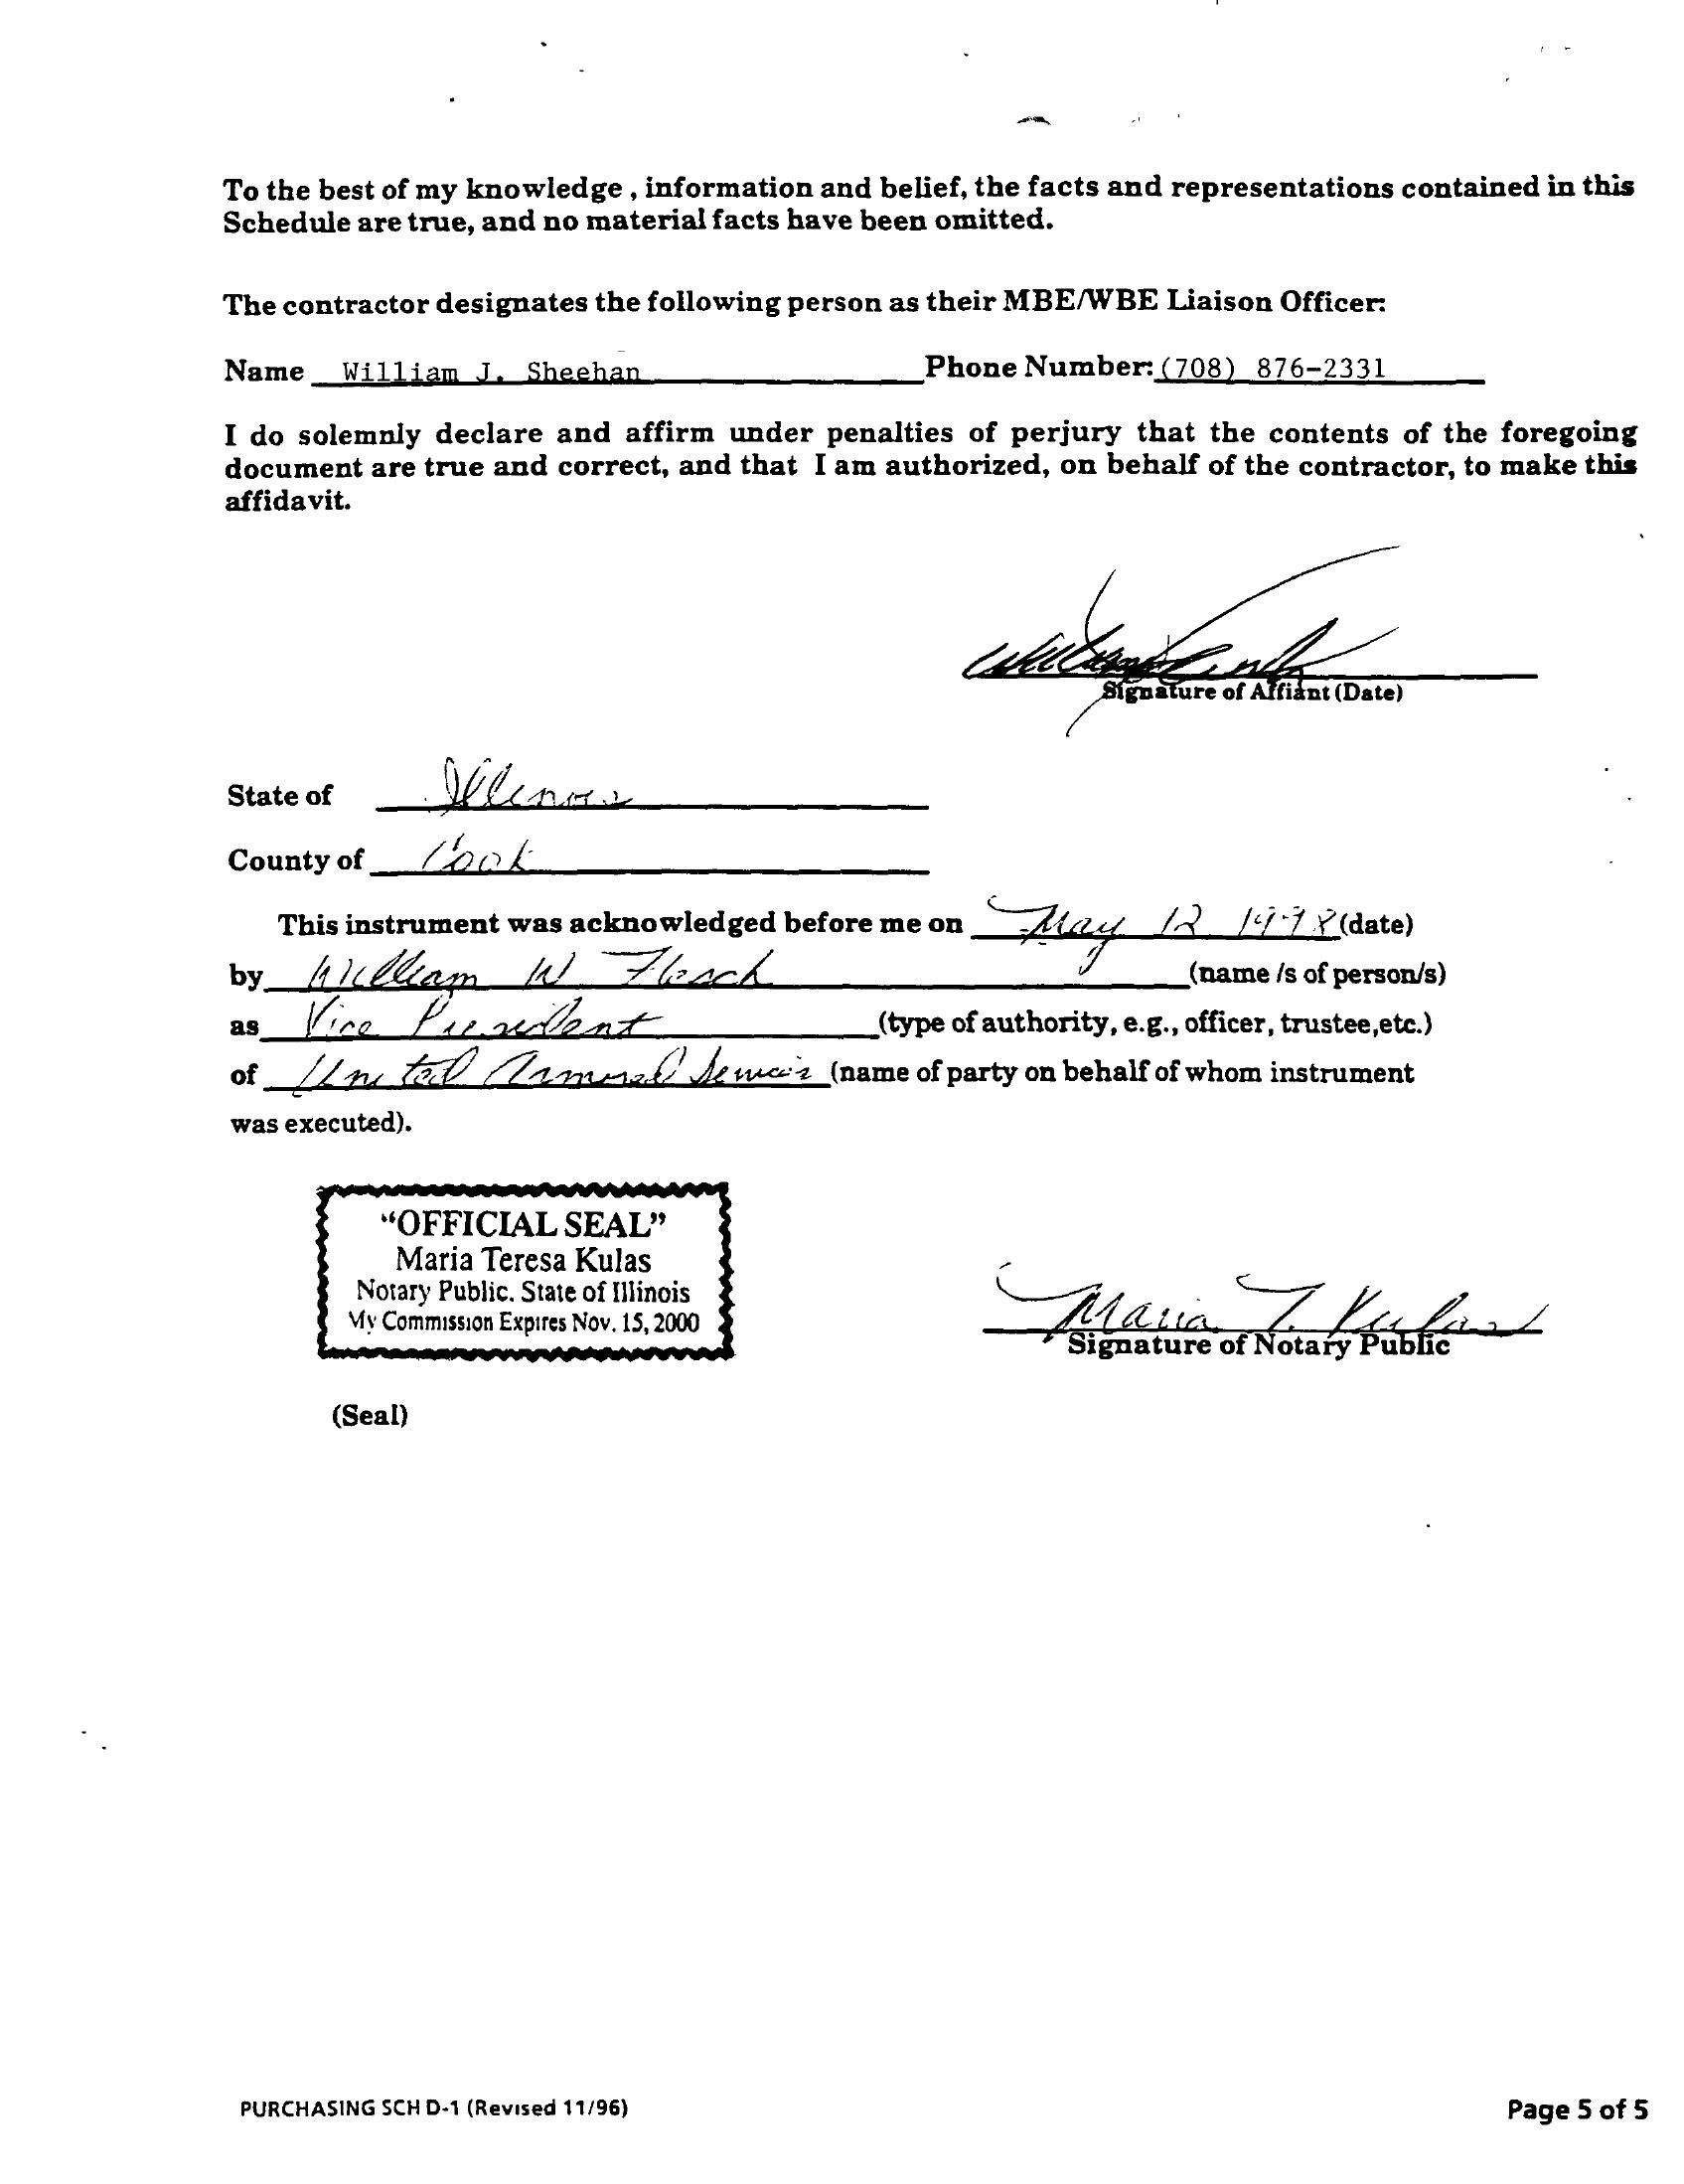 To the best of my knowledge , information and belief, the facts and representations contained in this
Schedule are true, and no material facts have been omitted.
The contractor designates the following person as their MBE/WBE Liaison Officer:
Name William J. Sheehan Phone Number: (708) 876-2331
I do solemnly declare and affirm under penalties of perjury that the contents of the foregoing
document are true and correct, and that I am authorized, on behalf of the contractor, to make this
affidavit.
Signature of Affiant (Date)
State of Illinois
County of Cook
This instrument was acknowledged before me on May 12 1998 (date)
by William W (name /s of person/s)
as Vice President (type of authority, e.g., officer, trustee,etc.)
of United Armored Services (name of party on behalf of whom instrument
was executed).
"OFFICIAL SEAL"
Maria Teresa Kulas
Notary Public, State of Illinois
My Commission Expires Nov. 15, 2000
Maria T. Kulas
Signature of Notary Public
(Seal)
PURCHASING SCH D-1 (Revised 11/96) Page 5 of 5